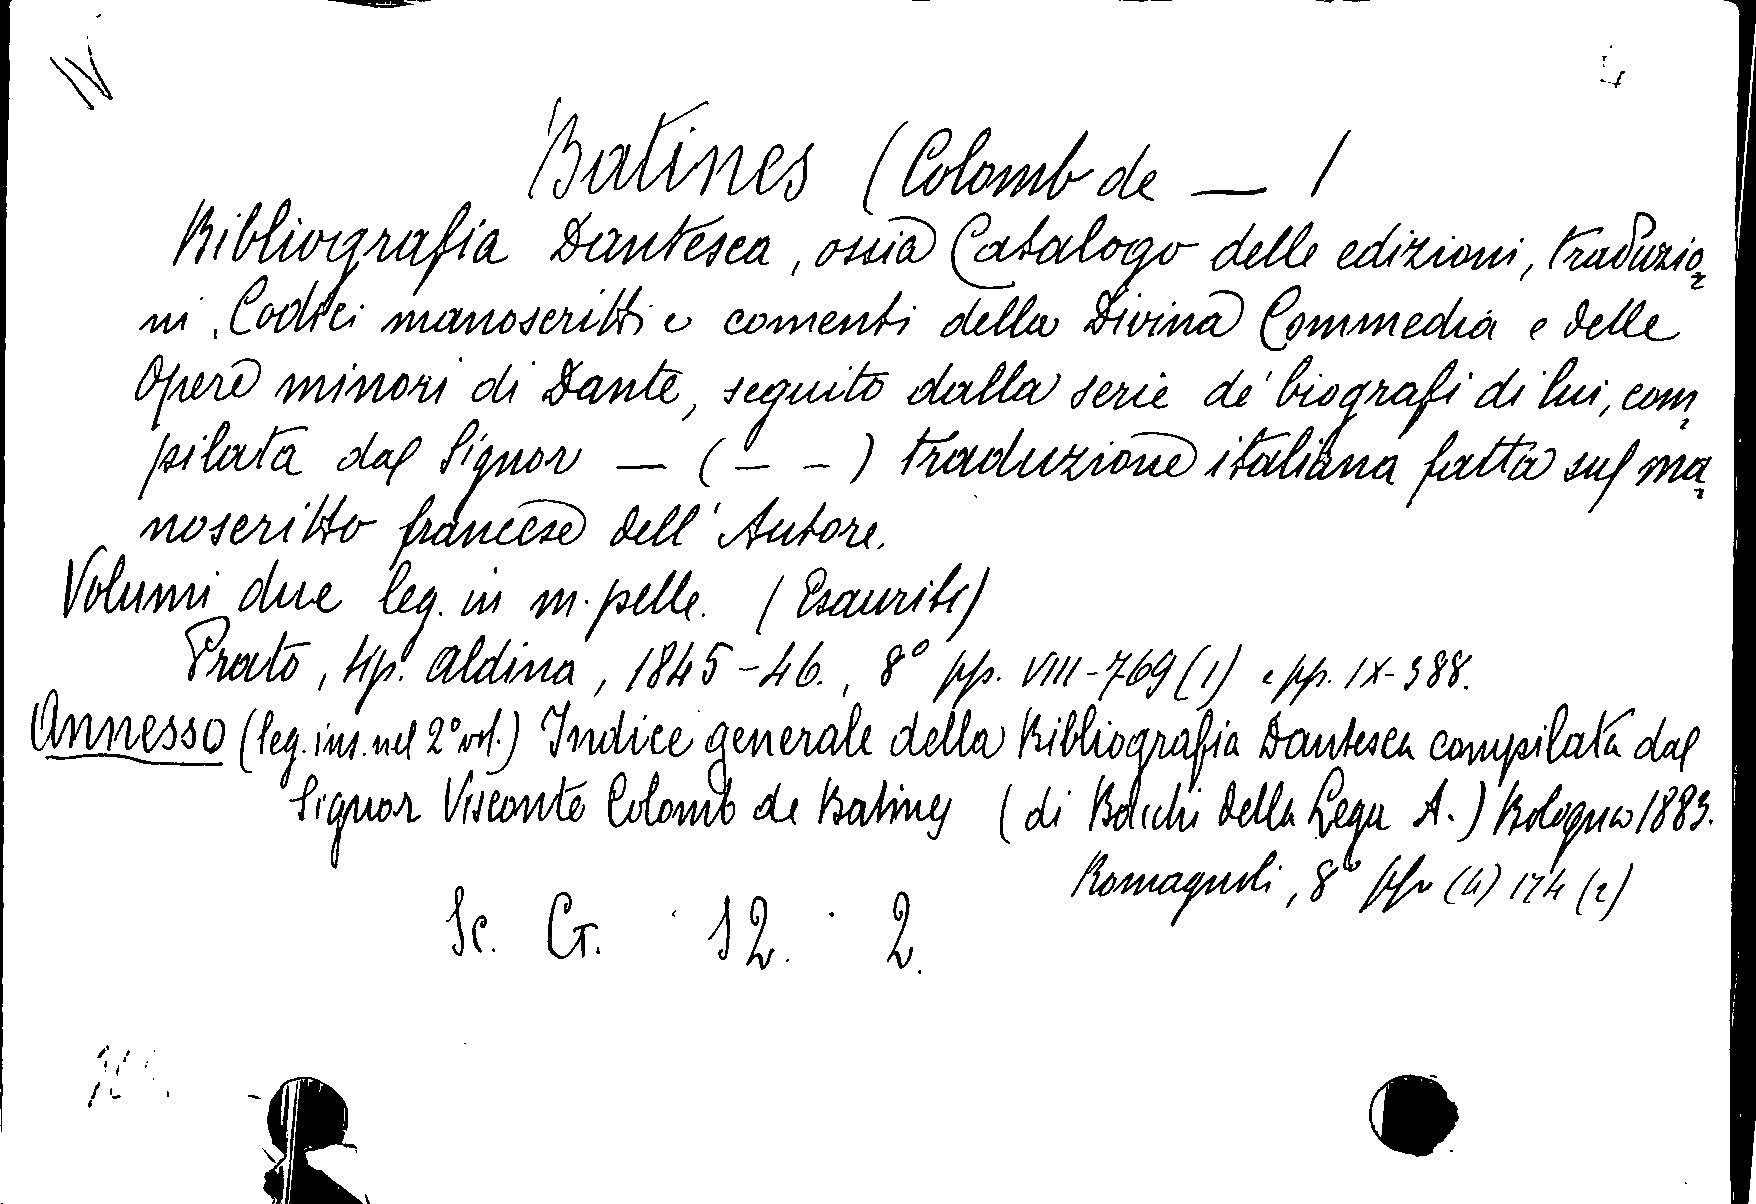 IV
Batines (Colomb de — )
Bibliografia Dantesca, ossia Catalogo delle edizioni, traduzio=
ni, Codici manoscritti e comenti della Divina Commedia e delle
Opere minori di Dante, seguito dalla serie de' biografi di lui, com=
pilata dal Signor — ( – – ) traduzione italiana fatta sul ma=
noscritto francese dell'Autore.
Volumi due leg. in m. pelle. (Esauriti)
Prato, tip. Aldina, 1845-46., 8° pp. VIII-769 (1) e pp. IX-388.
Annesso (leg. ins. nel 2° vol.) Indice generale della Bibliografia Dantesca compilata dal
Signor Visconte Colomb de Batines (di Bacchi della Lega A.) Bologna 1883.
Romagnoli, 8° pp (4) 174 (2)
Sc. G. 12. 2.